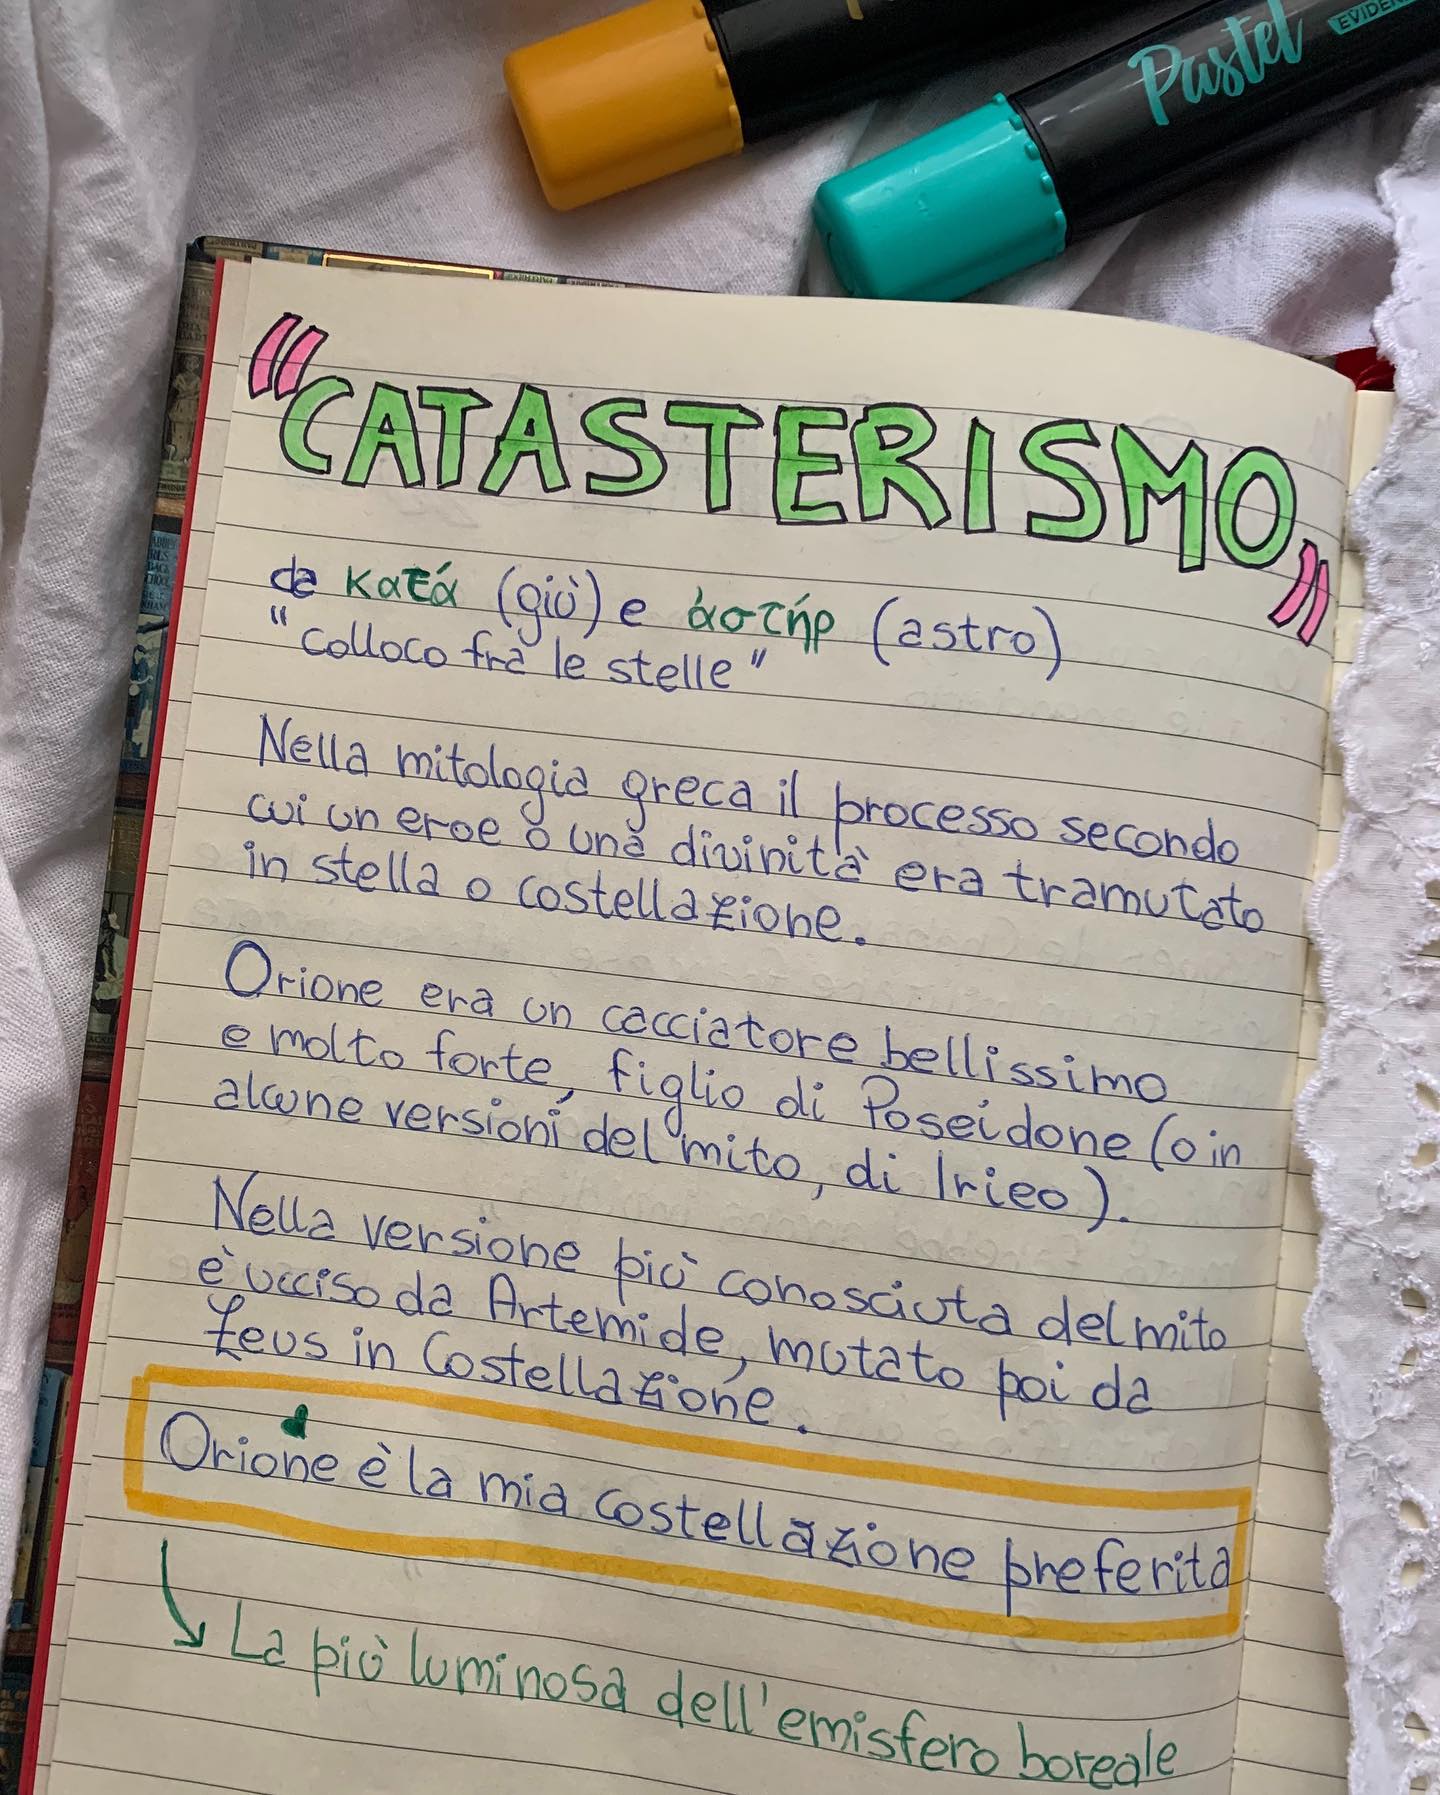 Pastel
"CATASTERISMO"
da κατά (giù) e ἀστήρ (astro)
"colloco fra le stelle"
Nella mitologia greca il processo secondo
cui un eroe o una divinità era tramutato
in stella o costellazione.
Orione era un cacciatore bellissimo
e molto forte, figlio di Poseidone (o in
alcune versioni del mito, di Irieo).
Nella versione più conosciuta del mito
è ucciso da Artemide, mutato poi da
Zeus in Costellazione.
Orione è la mia costellazione preferita
La più luminosa dell'emisfero boreale